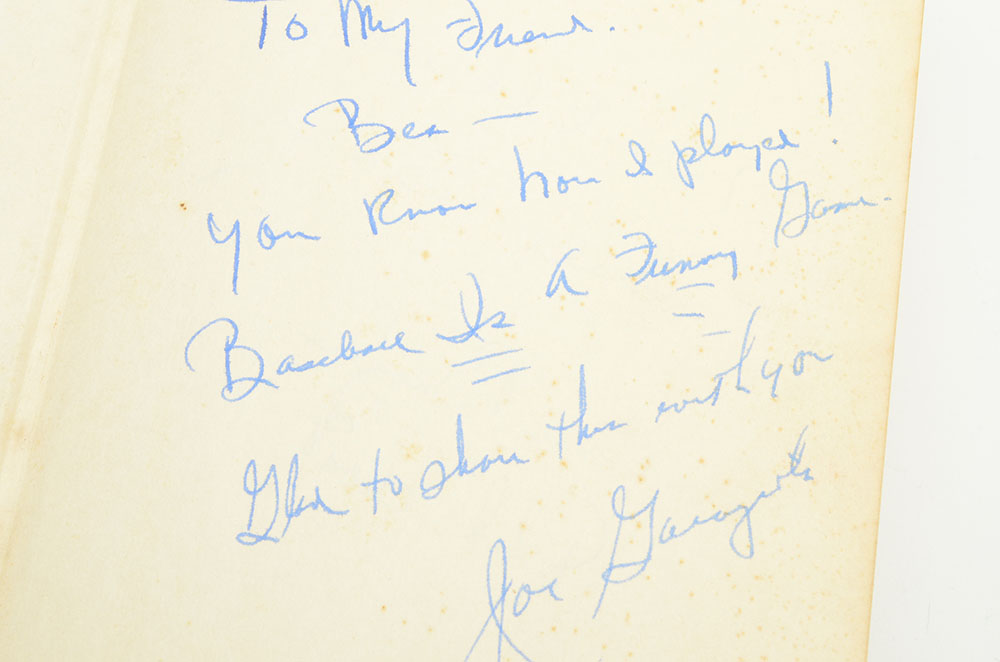 To My Friend.
Bea —
You Know how I played!
Baseball Is A Funny Game.
Glad to share this with you
Joe Garagiola